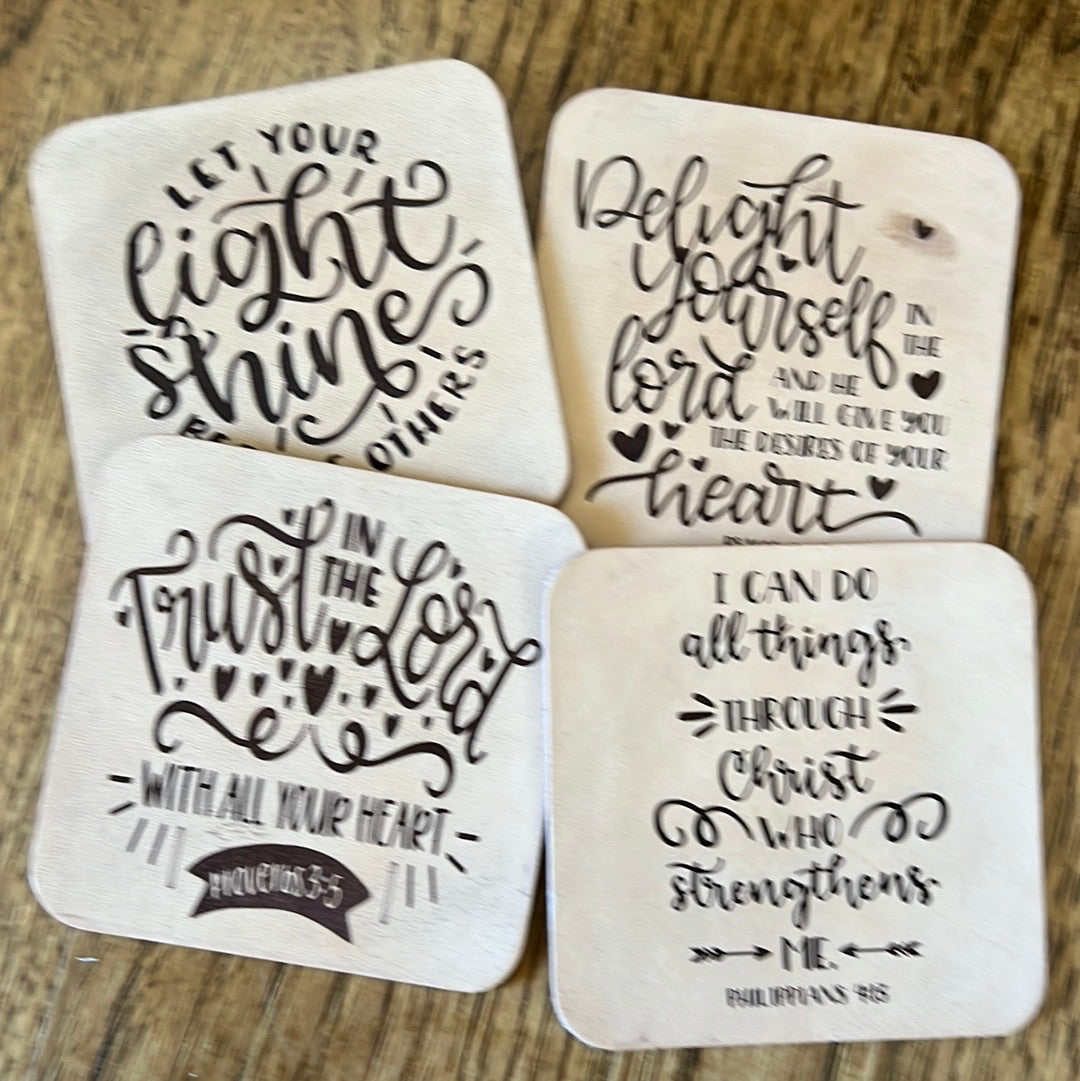 LET YOUR
light
shine
OTHERS
Delight
yourself
IN
THE
lord
AND HE
WILL GIVE YOU
THE DESIRES OF YOUR
heart
Trust IN
THE Lord
WITH ALL YOUR HEART
I CAN DO
all things
THROUGH
Christ
WHO
strengthens
ME.